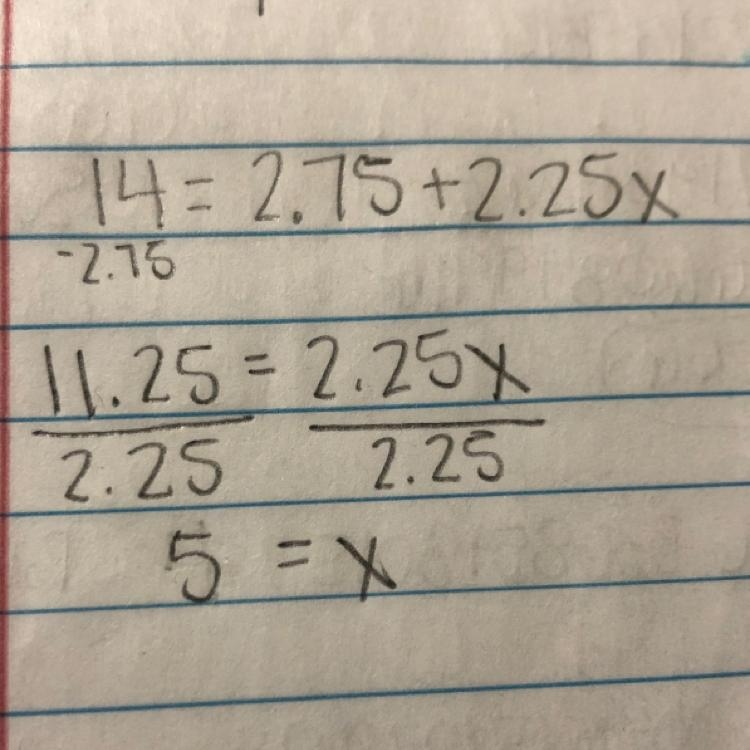 14 = 2.75 + 2.25x
-2.75
11.25 = 2.25x
2.25 2.25
5 = x